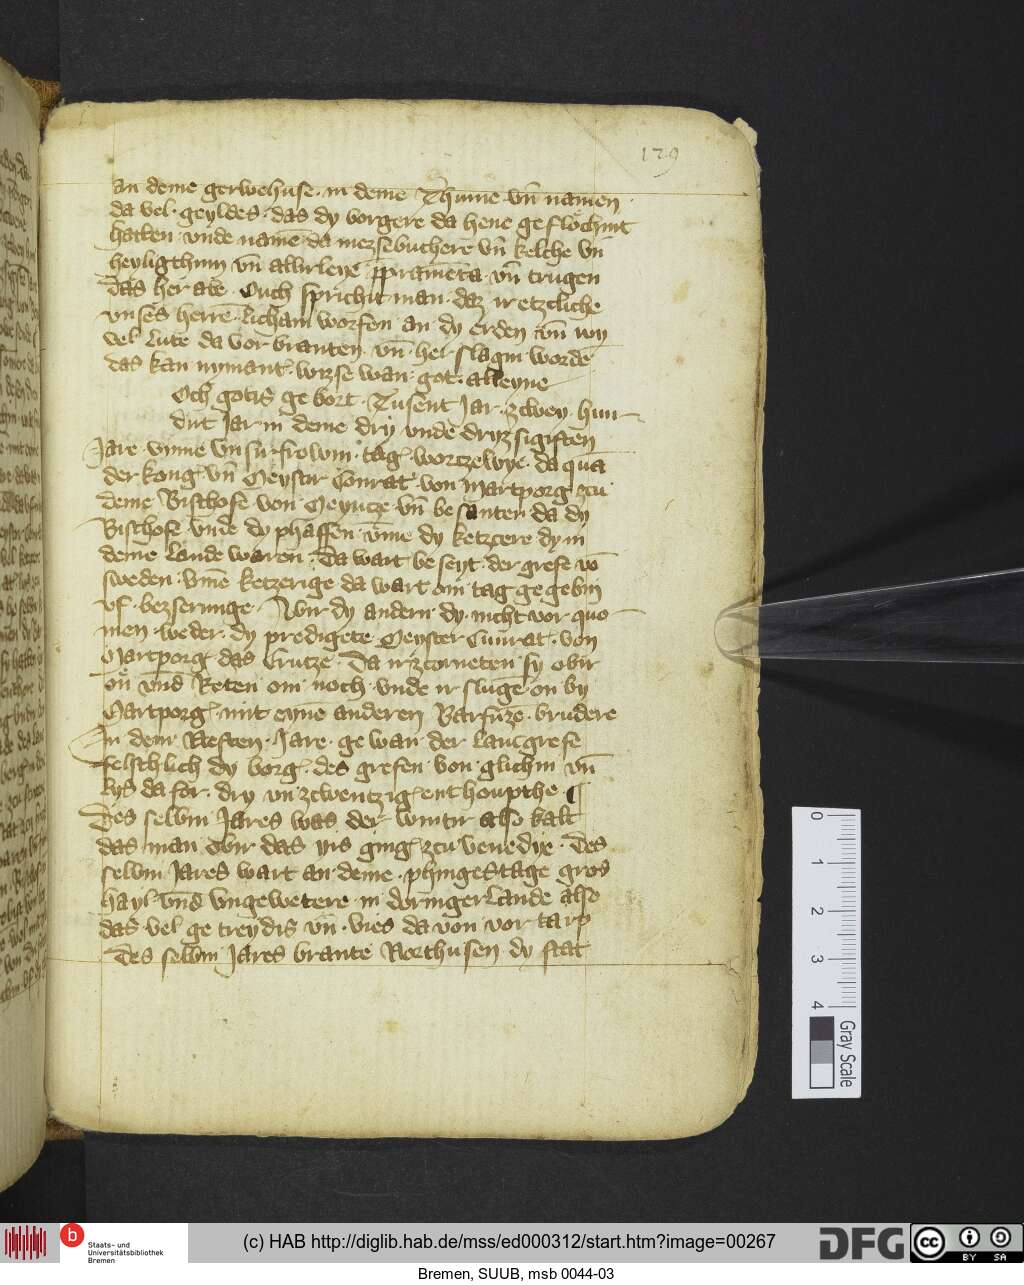 129
an deme gerwehuse · in deme Thume vn̄ namen ·
da vel · geyldes · das dy borgere da hene geflochint
hatten vnde namē da messebuchere vn̄ kelche vn̄
heyligthum vn̄ allirleye ꝑpramēta vn̄ trugen
das her abe Ouch sprichit man · daz ir etzcliche
vnses herrē · licham worfen an dy erden vn̄ wy
vel lute da vor branten vn̄ hel slagin wordē
das kan nymant · wisse wan · got · alleyne
Och gotis gebort · Tusent Jar · zcwey · hun-
dirt Jar in deme dry vnde dryzsigisten
Jare · vmme vnsir frowin · tag · wortzelwye · da quā
der konig vn̄ Meystir Conrat von Martporg zcu
deme Bischofe von Meyntze vn̄ besanten da dy
Bischofe vnde dy phaffen · vm̄e dy ketzcere dy in
deme lande waren · da wart beseyt · der grefe vō
sweden · vm̄e ketzerige da wart om̄ tag gegebin
vf · bezserunge · Wir dy andern dy · nicht vor quo-
men · weder · dy predigete Meyster Cunrat · von
Martporg · das Crutze · Da irzcorneten sy obir
on̄ vnd Reten om noch vnde ir slugē on by
Martporg · mit eyne anderen Barfuzē · brudere
In dem Nesten · Jare · gewan der lantgrefe
felschlich dy borg · des grefen von glichin vn̄
lys da for · dry vn zcwentzig enthoupthe · ¶
Des selbin Jares was der wintir also kalt
das man obir das yis ging zcu venedye · Des
selbin Jares wart an deme · phingestage gros
hayl vnd vngewetere in doringer lande also
das vel getreydis vn̄ · vies da von vor tarp
Des selbin Jares brante Northusen dy stat
0
1
2
3
4
Gray Scale
b
Staats- und
Universitätsbibliothek
Bremen
(c) HAB http://diglib.hab.de/mss/ed000312/start.htm?image=00267
DFG
cc
BY SA
Bremen, SUUB, msb 0044-03